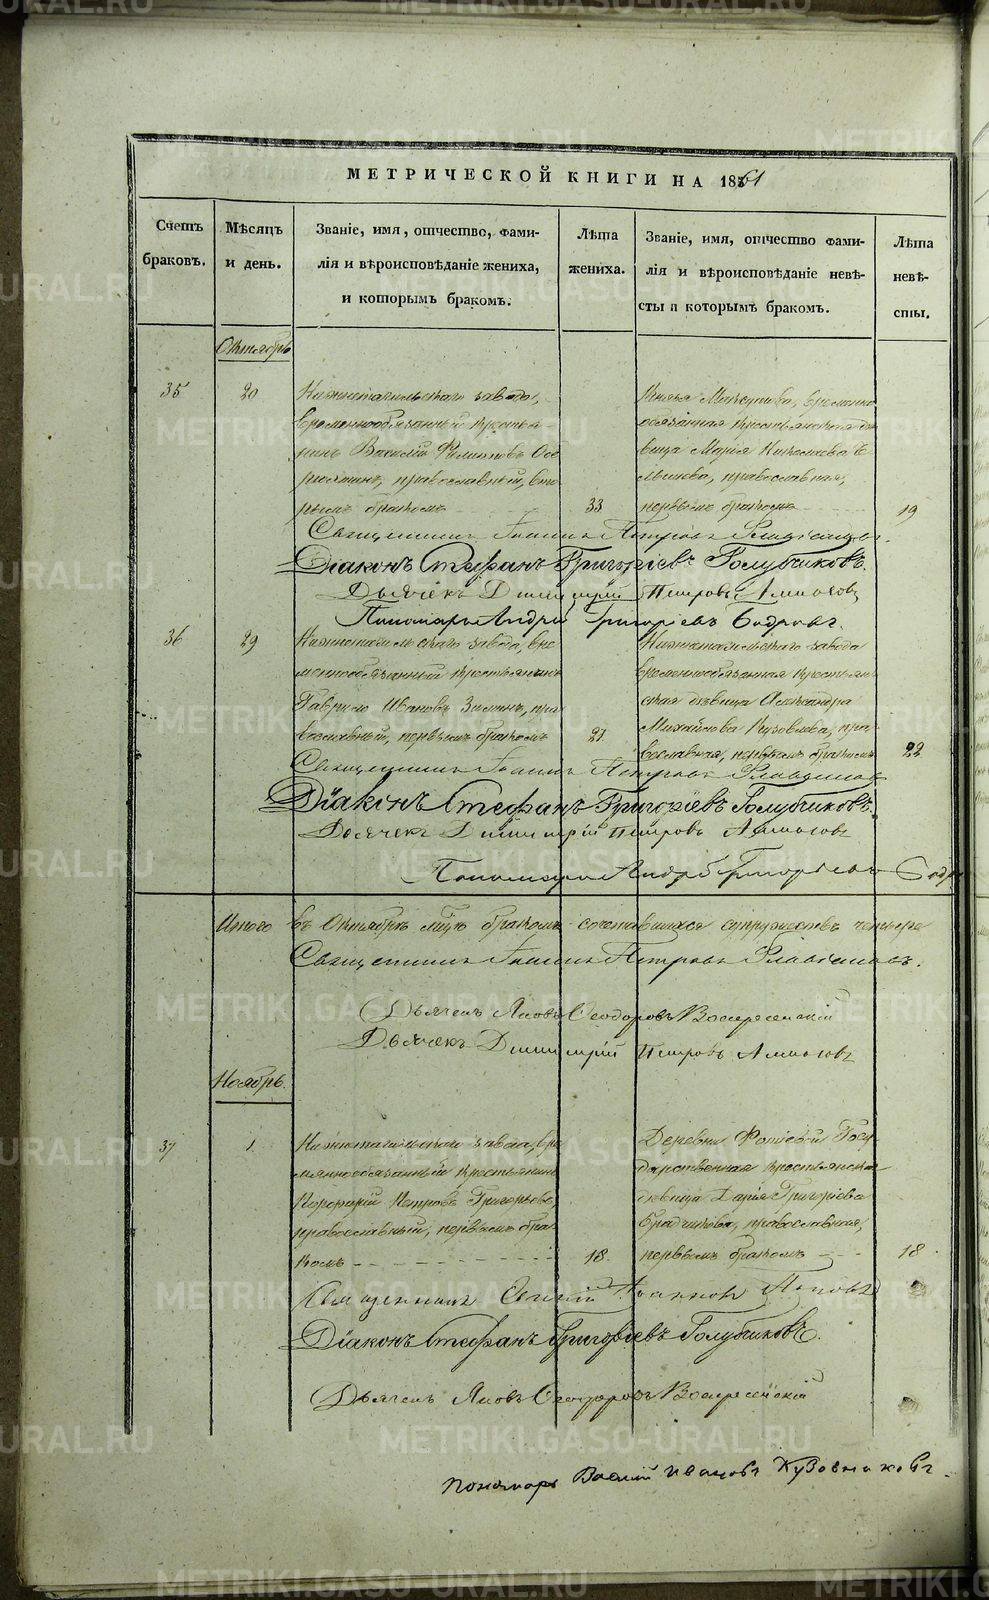 МЕТРИЧЕСКОЙ КНИГИ НА 1861
Счетъ браковъ.
Мѣсяцъ и день.
Званіе, имя, отчество, фами-
лія и вѣроисповѣданіе жениха,
и которымъ бракомъ.
Лѣта жениха.
Званіе, имя, отчество фами-
лія и вѣроисповѣданіе невѣ-
сты и которымъ бракомъ.
Лѣта невѣ-
сты.
Октябрь
35
20
Нижнетагильскаго завода,
временнообязанный крестья-
нинъ Василій Филиповъ
православный, вто-
рымъ бракомъ
33
Князя временно
обязанная крестьянская дѣ-
вица Марія Николаева
православная,
первымъ бракомъ
19
Священникъ Іоаннъ Петровъ
Діаконъ Стефанъ Григоріевъ Голубчиковъ.
Дьячекъ Димитрій Петровъ
Пономарь Андрей Григоріевъ Бодровъ.
36
29
Нижнетагильскаго завода, вре
меннообязанный крестьянинъ
Гаврило Ивановъ Зиминъ, пра
вославный, первымъ бракомъ
27
Нижнетагильскаго завода
временнообязанная крестьян
ская дѣвица Александра
Михайлова пра-
вославная, первымъ бракомъ
22
Священникъ Іоаннъ Петровъ
Діаконъ Стефанъ Григоріевъ Голубчиковъ.
Дьячекъ Димитрій Петровъ
Пономарь Андрей Григоріевъ
Итого въ Октябрѣ мцѣ бракомъ сочетавшихся супружествъ четыре
Священникъ Іоаннъ Петровъ
Дьячекъ Яковъ Ѳеодоровъ Воскресенскій
Дьячекъ Димитрій Петровъ
Ноябрь.
37
1.
Нижнетагильскаго завода, вре
мяннообязанный крестьянинъ
Порфирій Петровъ Григорьевъ,
православный, первымъ бра-
комъ
18.
Деревни Госу
дарственная крестьянская
дѣвица Дарія Григоріева
православная,
первымъ бракомъ
18
Священникъ Евгеній Іоанновъ Поповъ
Діаконъ Стефанъ Григоріевъ Голубчиковъ.
Дьячекъ Яковъ Ѳеодоровъ Воскресенскій
Пономарь Василій Ивановъ Кузовниковъ.
METRIKI.GASO-URAL.RU